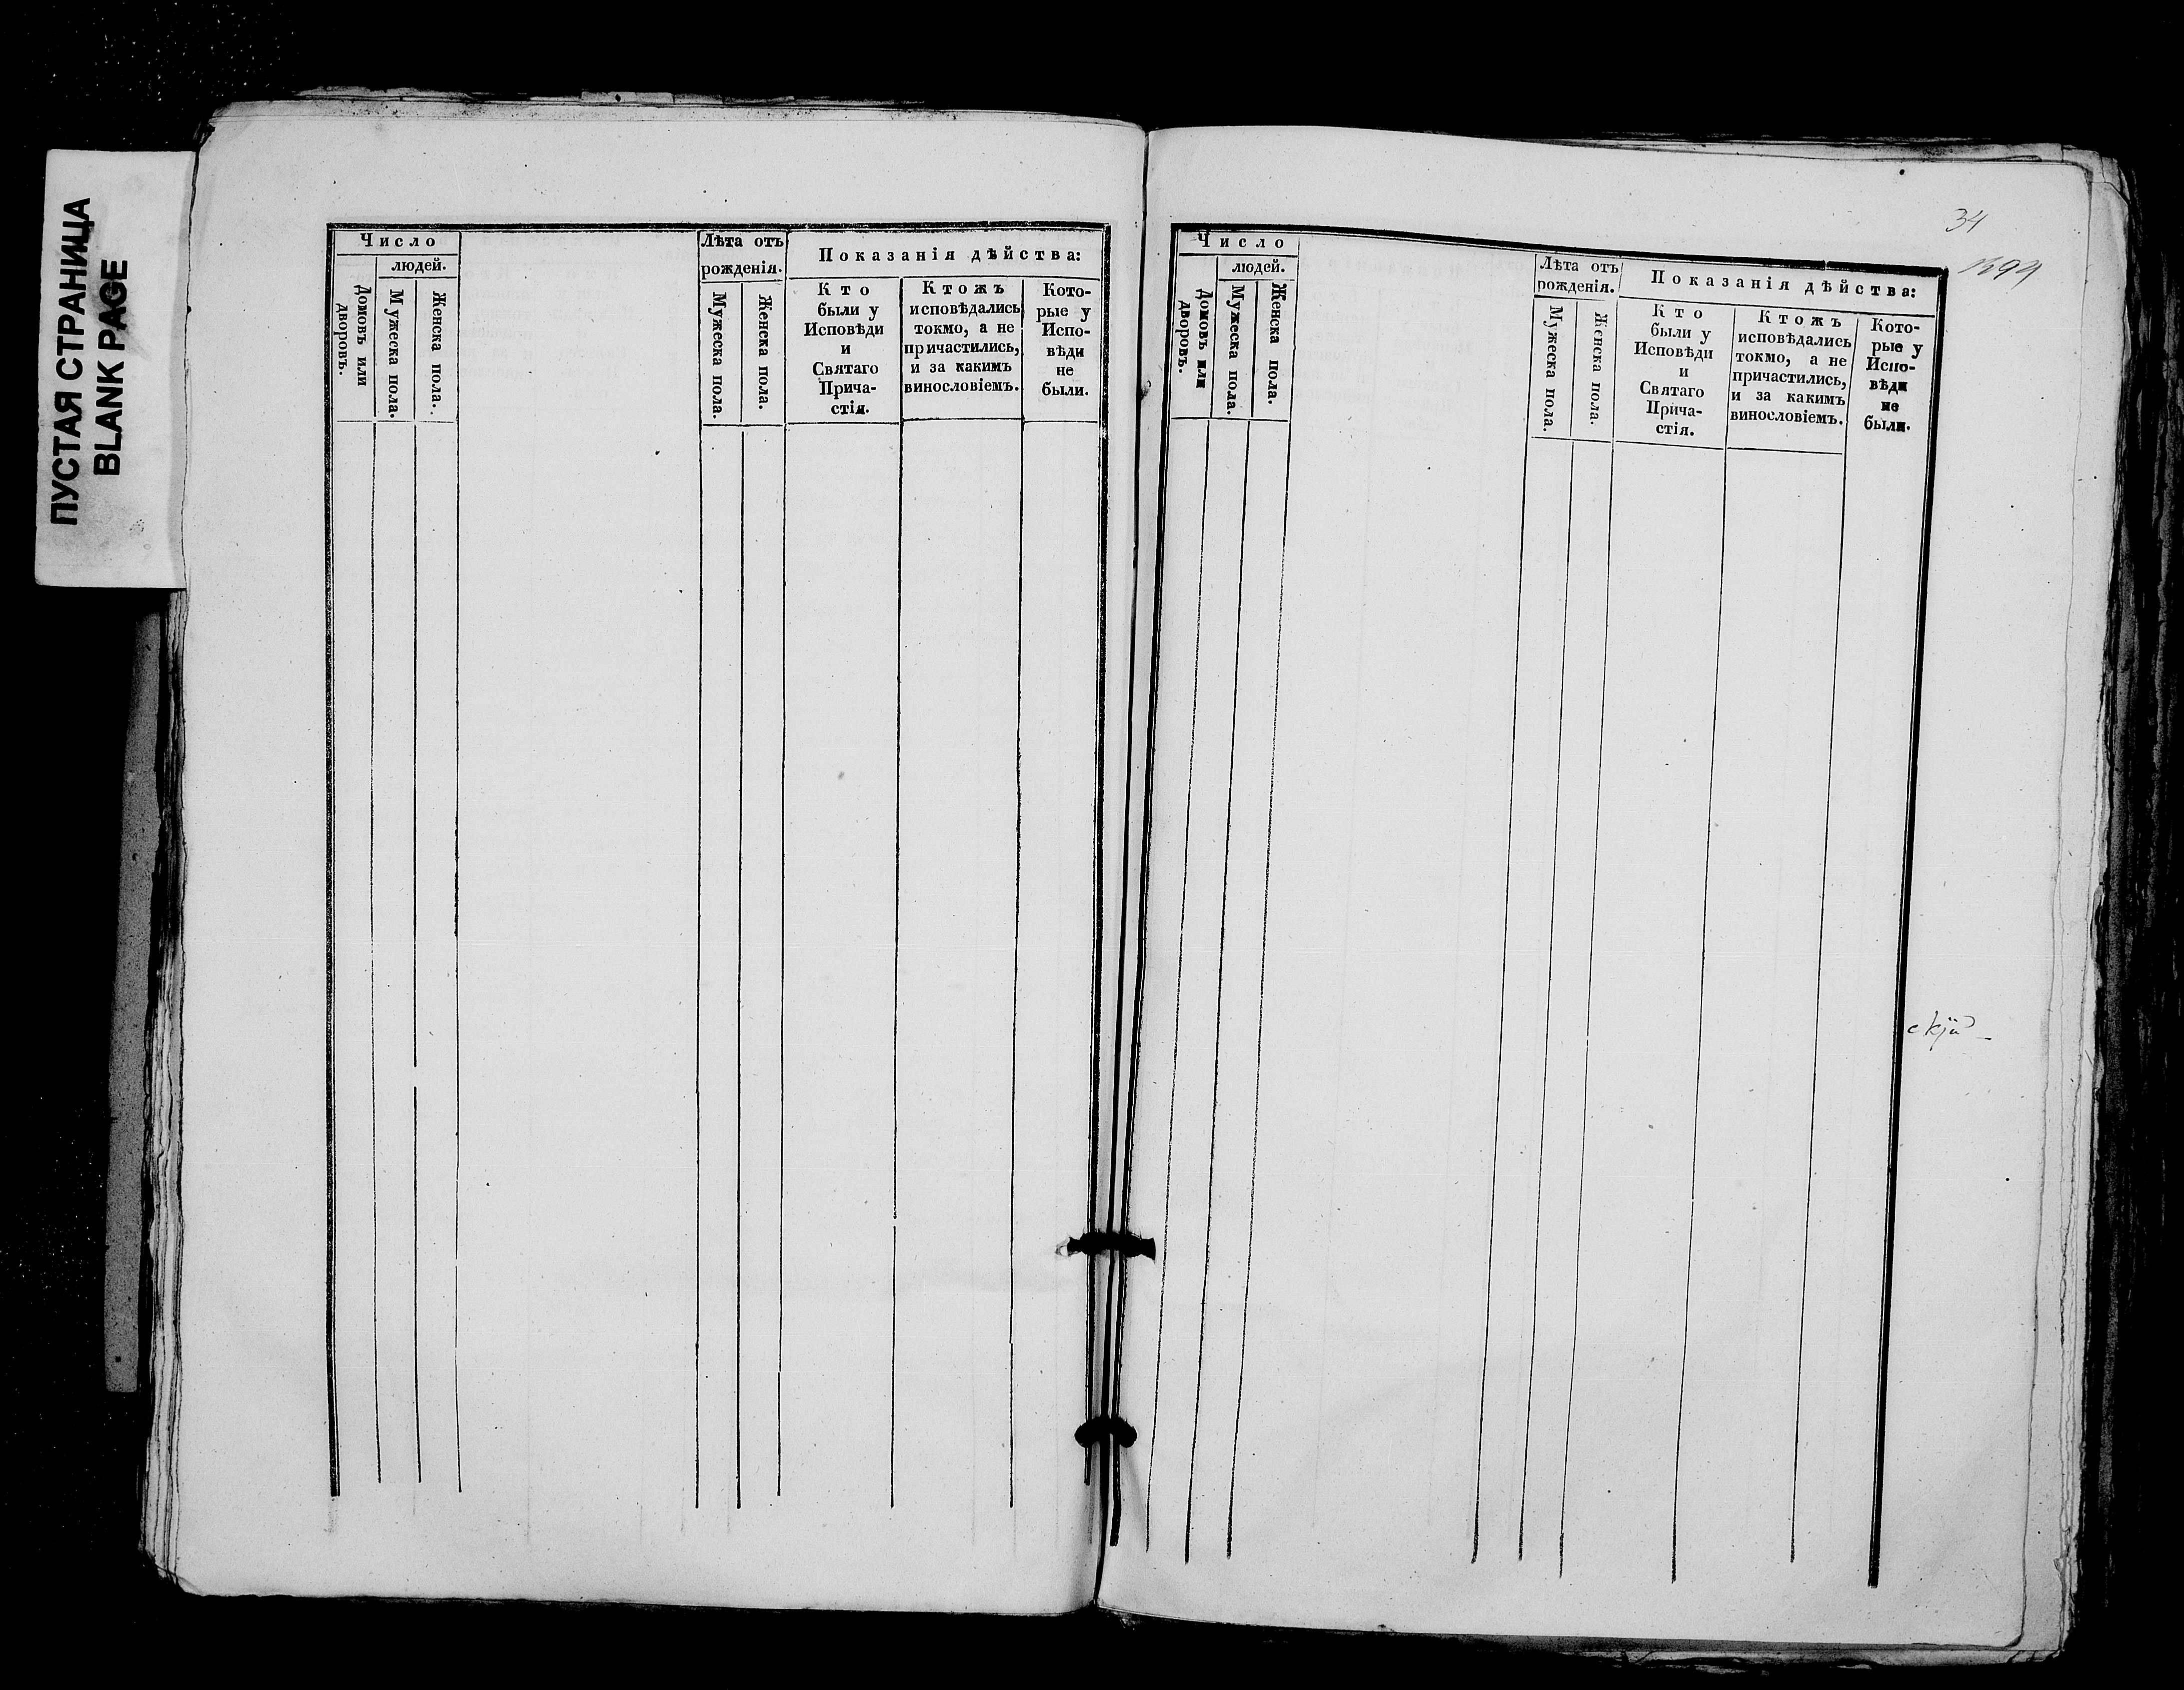 ПУСТАЯ СТРАНИЦА
BLANK PAGE
Число
людей.
Домовъ или
дворовъ.
Мужеска пола.
Женска пола.
Лѣта отъ
рожденія.
Мужеска пола.
Женска пола.
Показанія дѣйства:
Кто
были у
Исповѣди
и
Святаго
Прича-
стія.
Ктожъ
исповѣдались
токмо, а не
причастились,
и за какимъ
винословіемъ.
Кото-
рые у
Испо-
вѣди
не
были.
34
Число
людей.
Домовъ или
дворовъ.
Мужеска пола.
Женска пола.
Лѣта отъ
рожденія.
Мужеска пола.
Женска пола.
Показанія дѣйства:
Кто
были у
Исповѣди
и
Святаго
Прича-
стія.
Ктожъ
исповѣдались
токмо, а не
причастились,
и за какимъ
винословіемъ.
Кото-
рые у
Испо-
вѣди
не
были.
скій